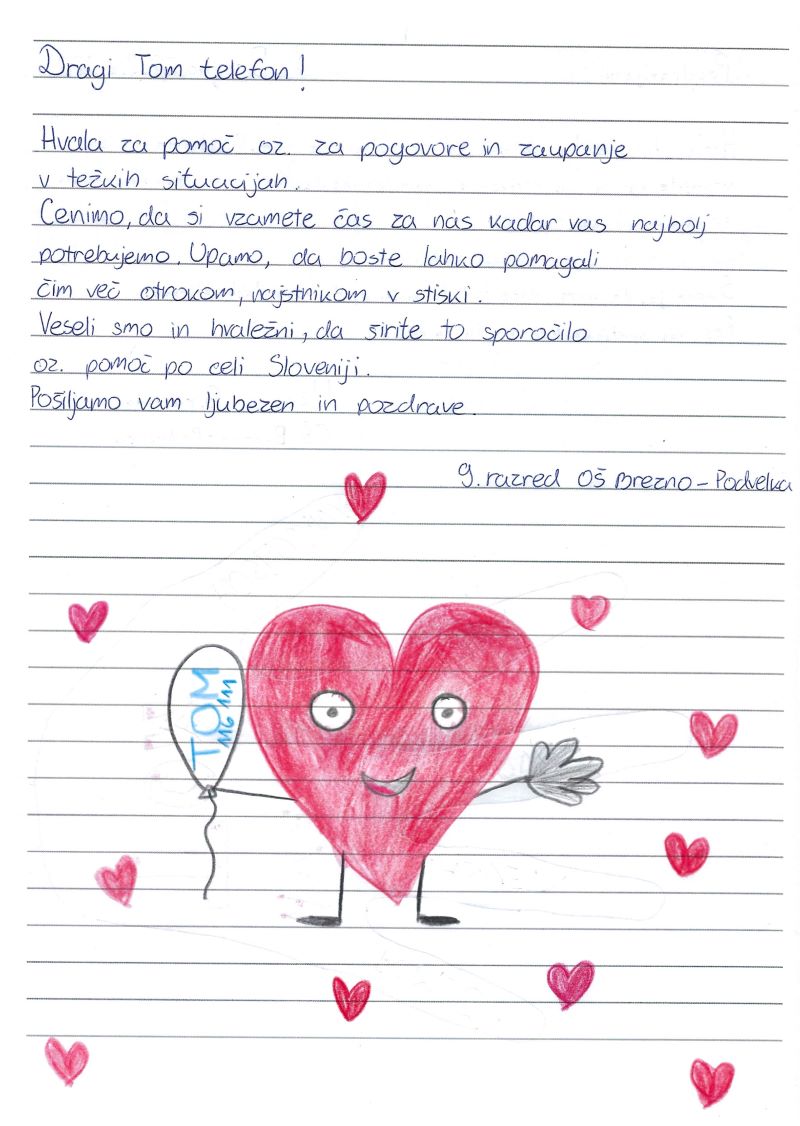 Dragi Tom telefon!
Hvala za pomoč oz. za pogovore in zaupanje
v težkih situacijah.
Cenimo, da si vzamete čas za nas kadar vas najbolj
potrebujemo. Upamo, da boste lahko pomagali
čim več otrokom, najstnikom v stiski.
Veseli smo in hvaležni, da širite to sporočilo
oz. pomoč po celi Sloveniji.
Pošiljamo vam ljubezen in pozdrave.
9. razred OŠ Brezno - Podvelka
TOM
116 111